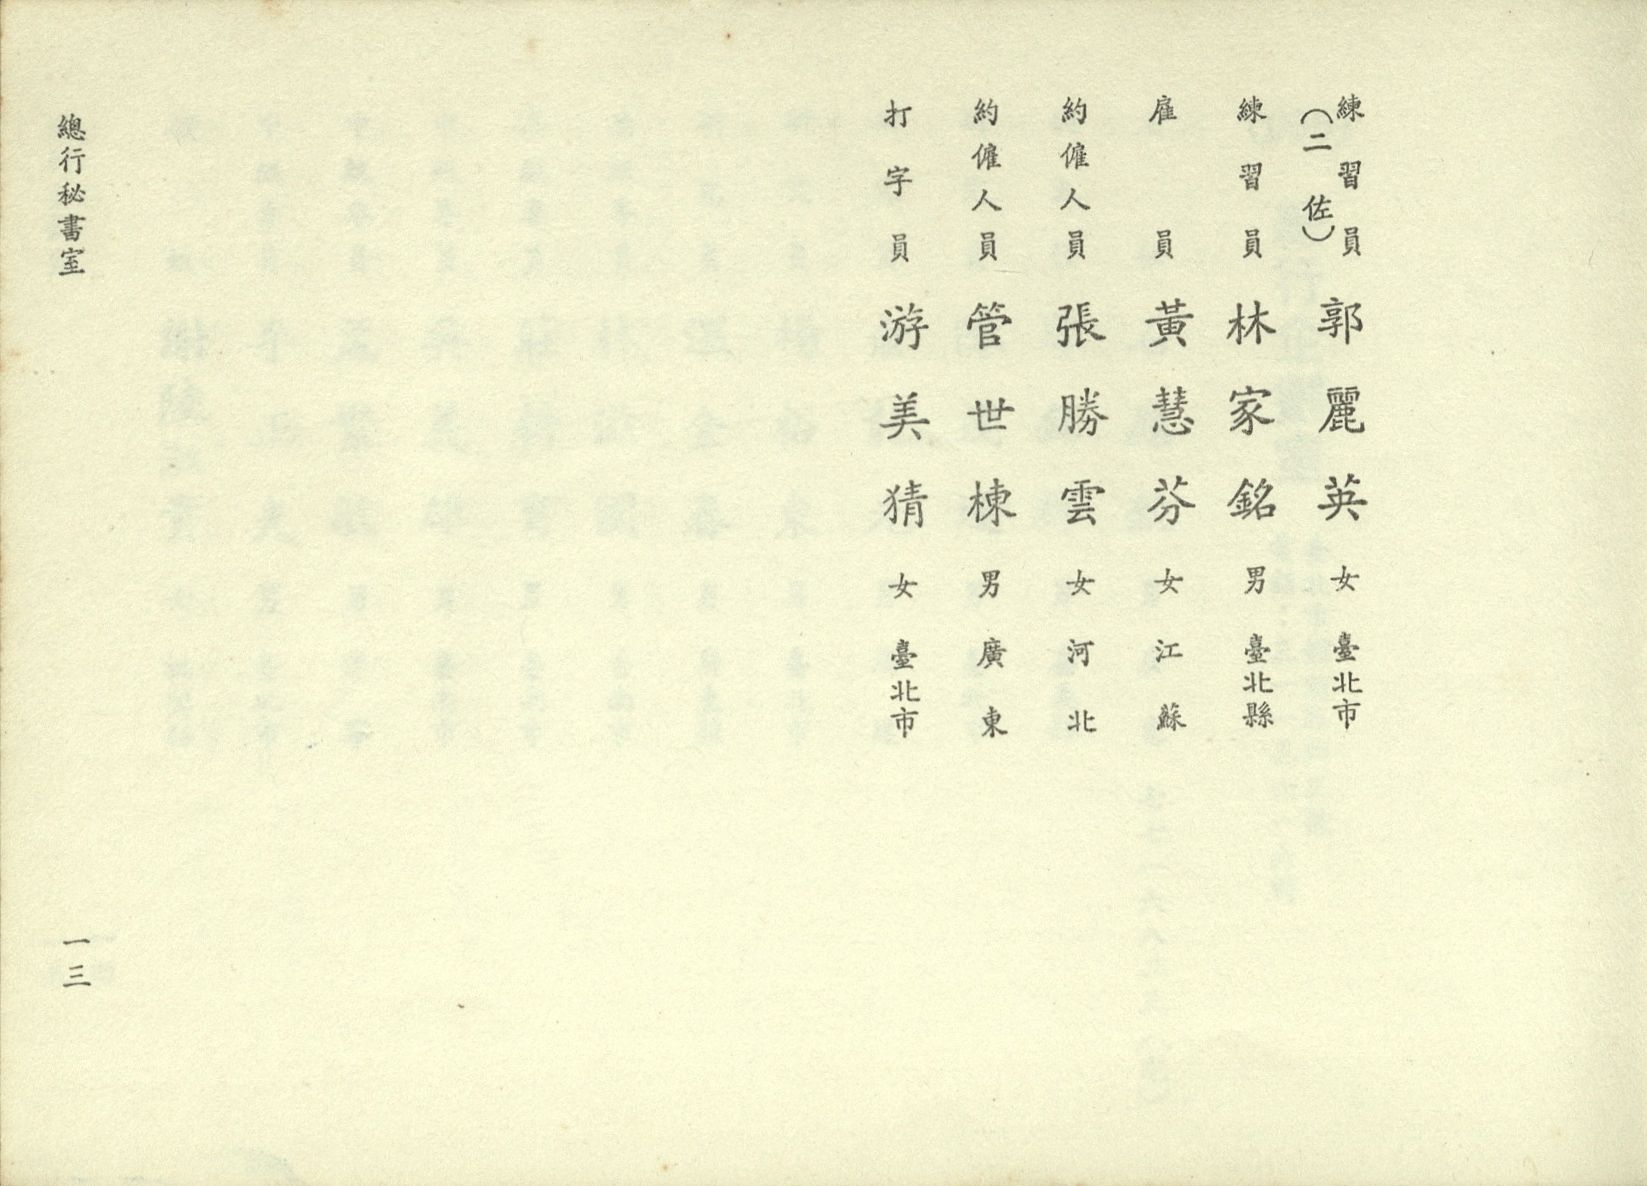 練習員 郭麗英 女 臺北市
(二佐)
練習員 林家銘 男 臺北縣
雇員 黃慧芬 女 江蘇
約僱人員 張勝雲 女 河北
約僱人員 管世棟 男 廣東
打字員 游美猜 女 臺北市
總行秘書室 一三